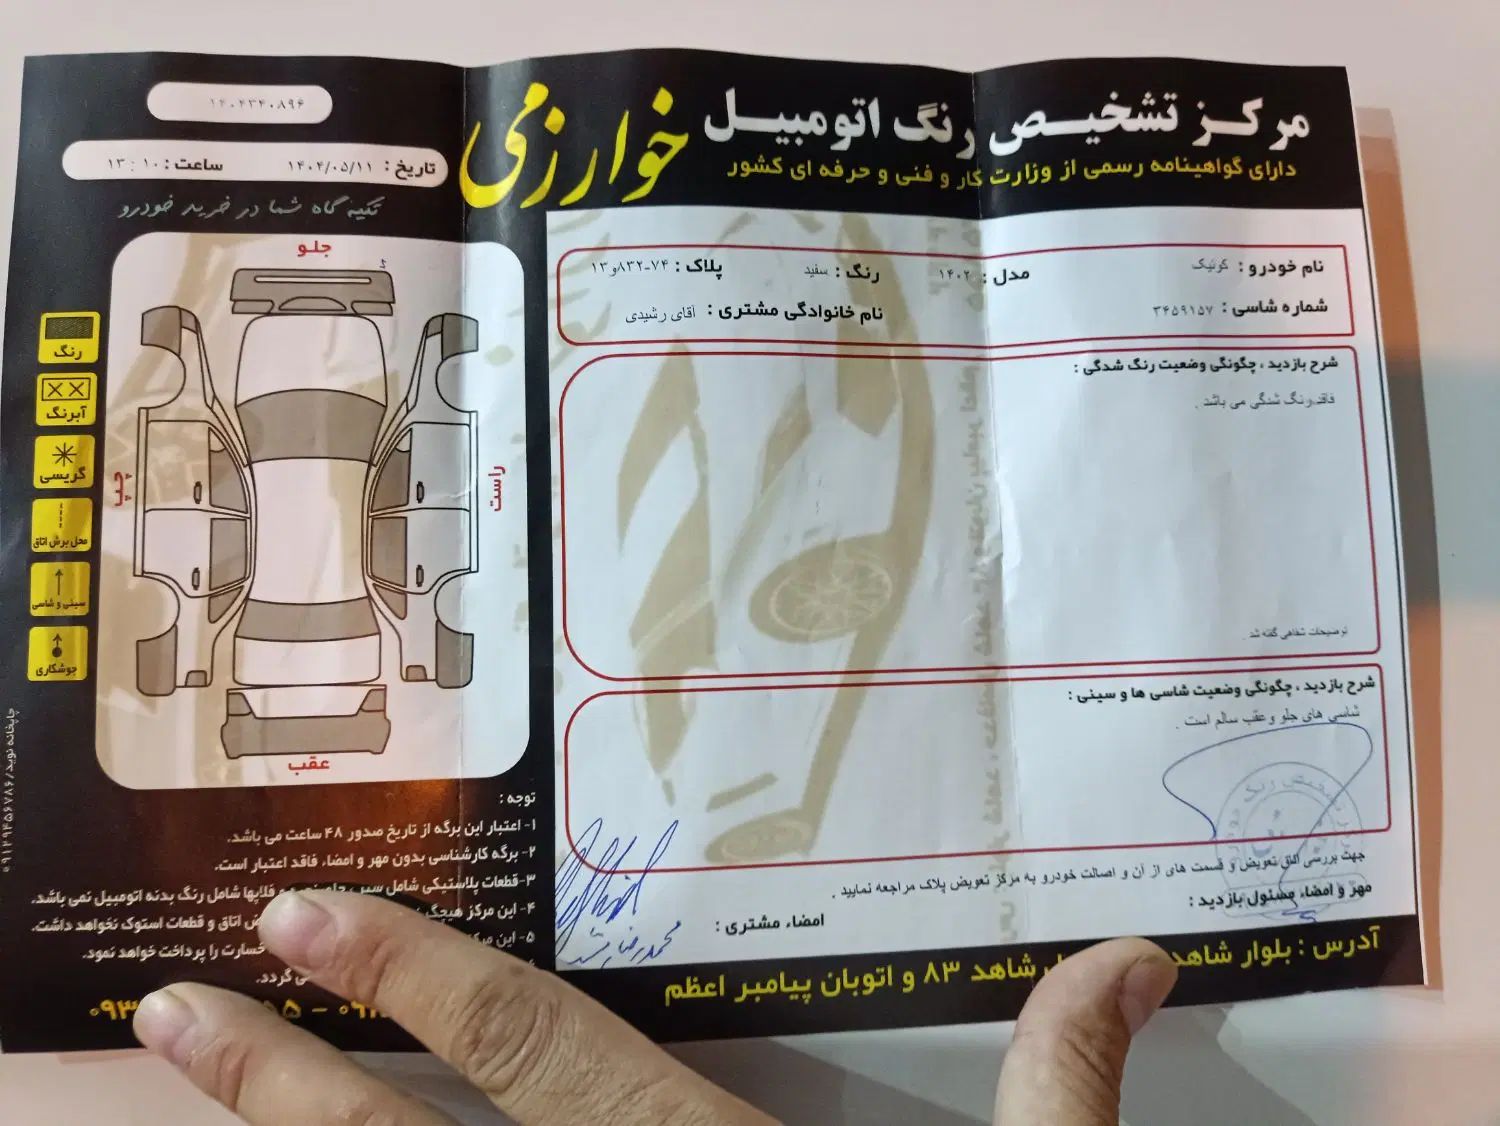 مرکز تشخیص رنگ اتومبیل خوارزمی
دارای گواهینامه رسمی از وزارت کار و فنی و حرفه ای کشور
۱۴۰۴۳۴۰۸۹۶
تاریخ : ۱۴۰۴/۰۵/۱۱ ساعت : ۱۳:۱۰
تکیه گاه شما در خرید خودرو
نام خودرو : کوئیک مدل : ۱۴۰۲ رنگ : سفید پلاک : ۷۴-۸۳۲و۱۳
شماره شاسی : ۳۴۵۹۱۵۷ نام خانوادگی مشتری : آقای رشیدی
شرح بازدید ، چگونگی وضعیت رنگ شدگی :
فاقد رنگ شدگی می باشد .
توضیحات شفاهی گفته شد .
شرح بازدید ، چگونگی وضعیت شاسی ها و سینی :
شاسی های جلو و عقب سالم است .
جهت بررسی اتاق تعویض و قسمت های از آن و اصالت خودرو به مرکز تعویض پلاک مراجعه نمایید .
مهر و امضاء مسئول بازدید :
امضاء مشتری :
محمدرضا
آدرس : بلوار شاهد شاهد ۸۳ و اتوبان پیامبر اعظم
جلو
چپ
راست
عقب
رنگ
آبرنگ
گریسی
محل برش اتاق
سینی و شاسی
جوشکاری
توجه :
۱- اعتبار این برگه از تاریخ صدور ۴۸ ساعت می باشد.
۲- برگه کارشناسی بدون مهر و امضاء فاقد اعتبار است.
۳-قطعات پلاستیکی شامل سپر ، و فلاپها شامل رنگ بدنه اتومبیل نمی باشد.
۴- این مرکز هیچگ اتاق و قطعات استوک نخواهد داشت.
۵- این مرکز خسارت را پرداخت خواهد نمود.
گردد.
چاپخانه نوید/۰۹۱۲۹۴۵۶۷۸۶